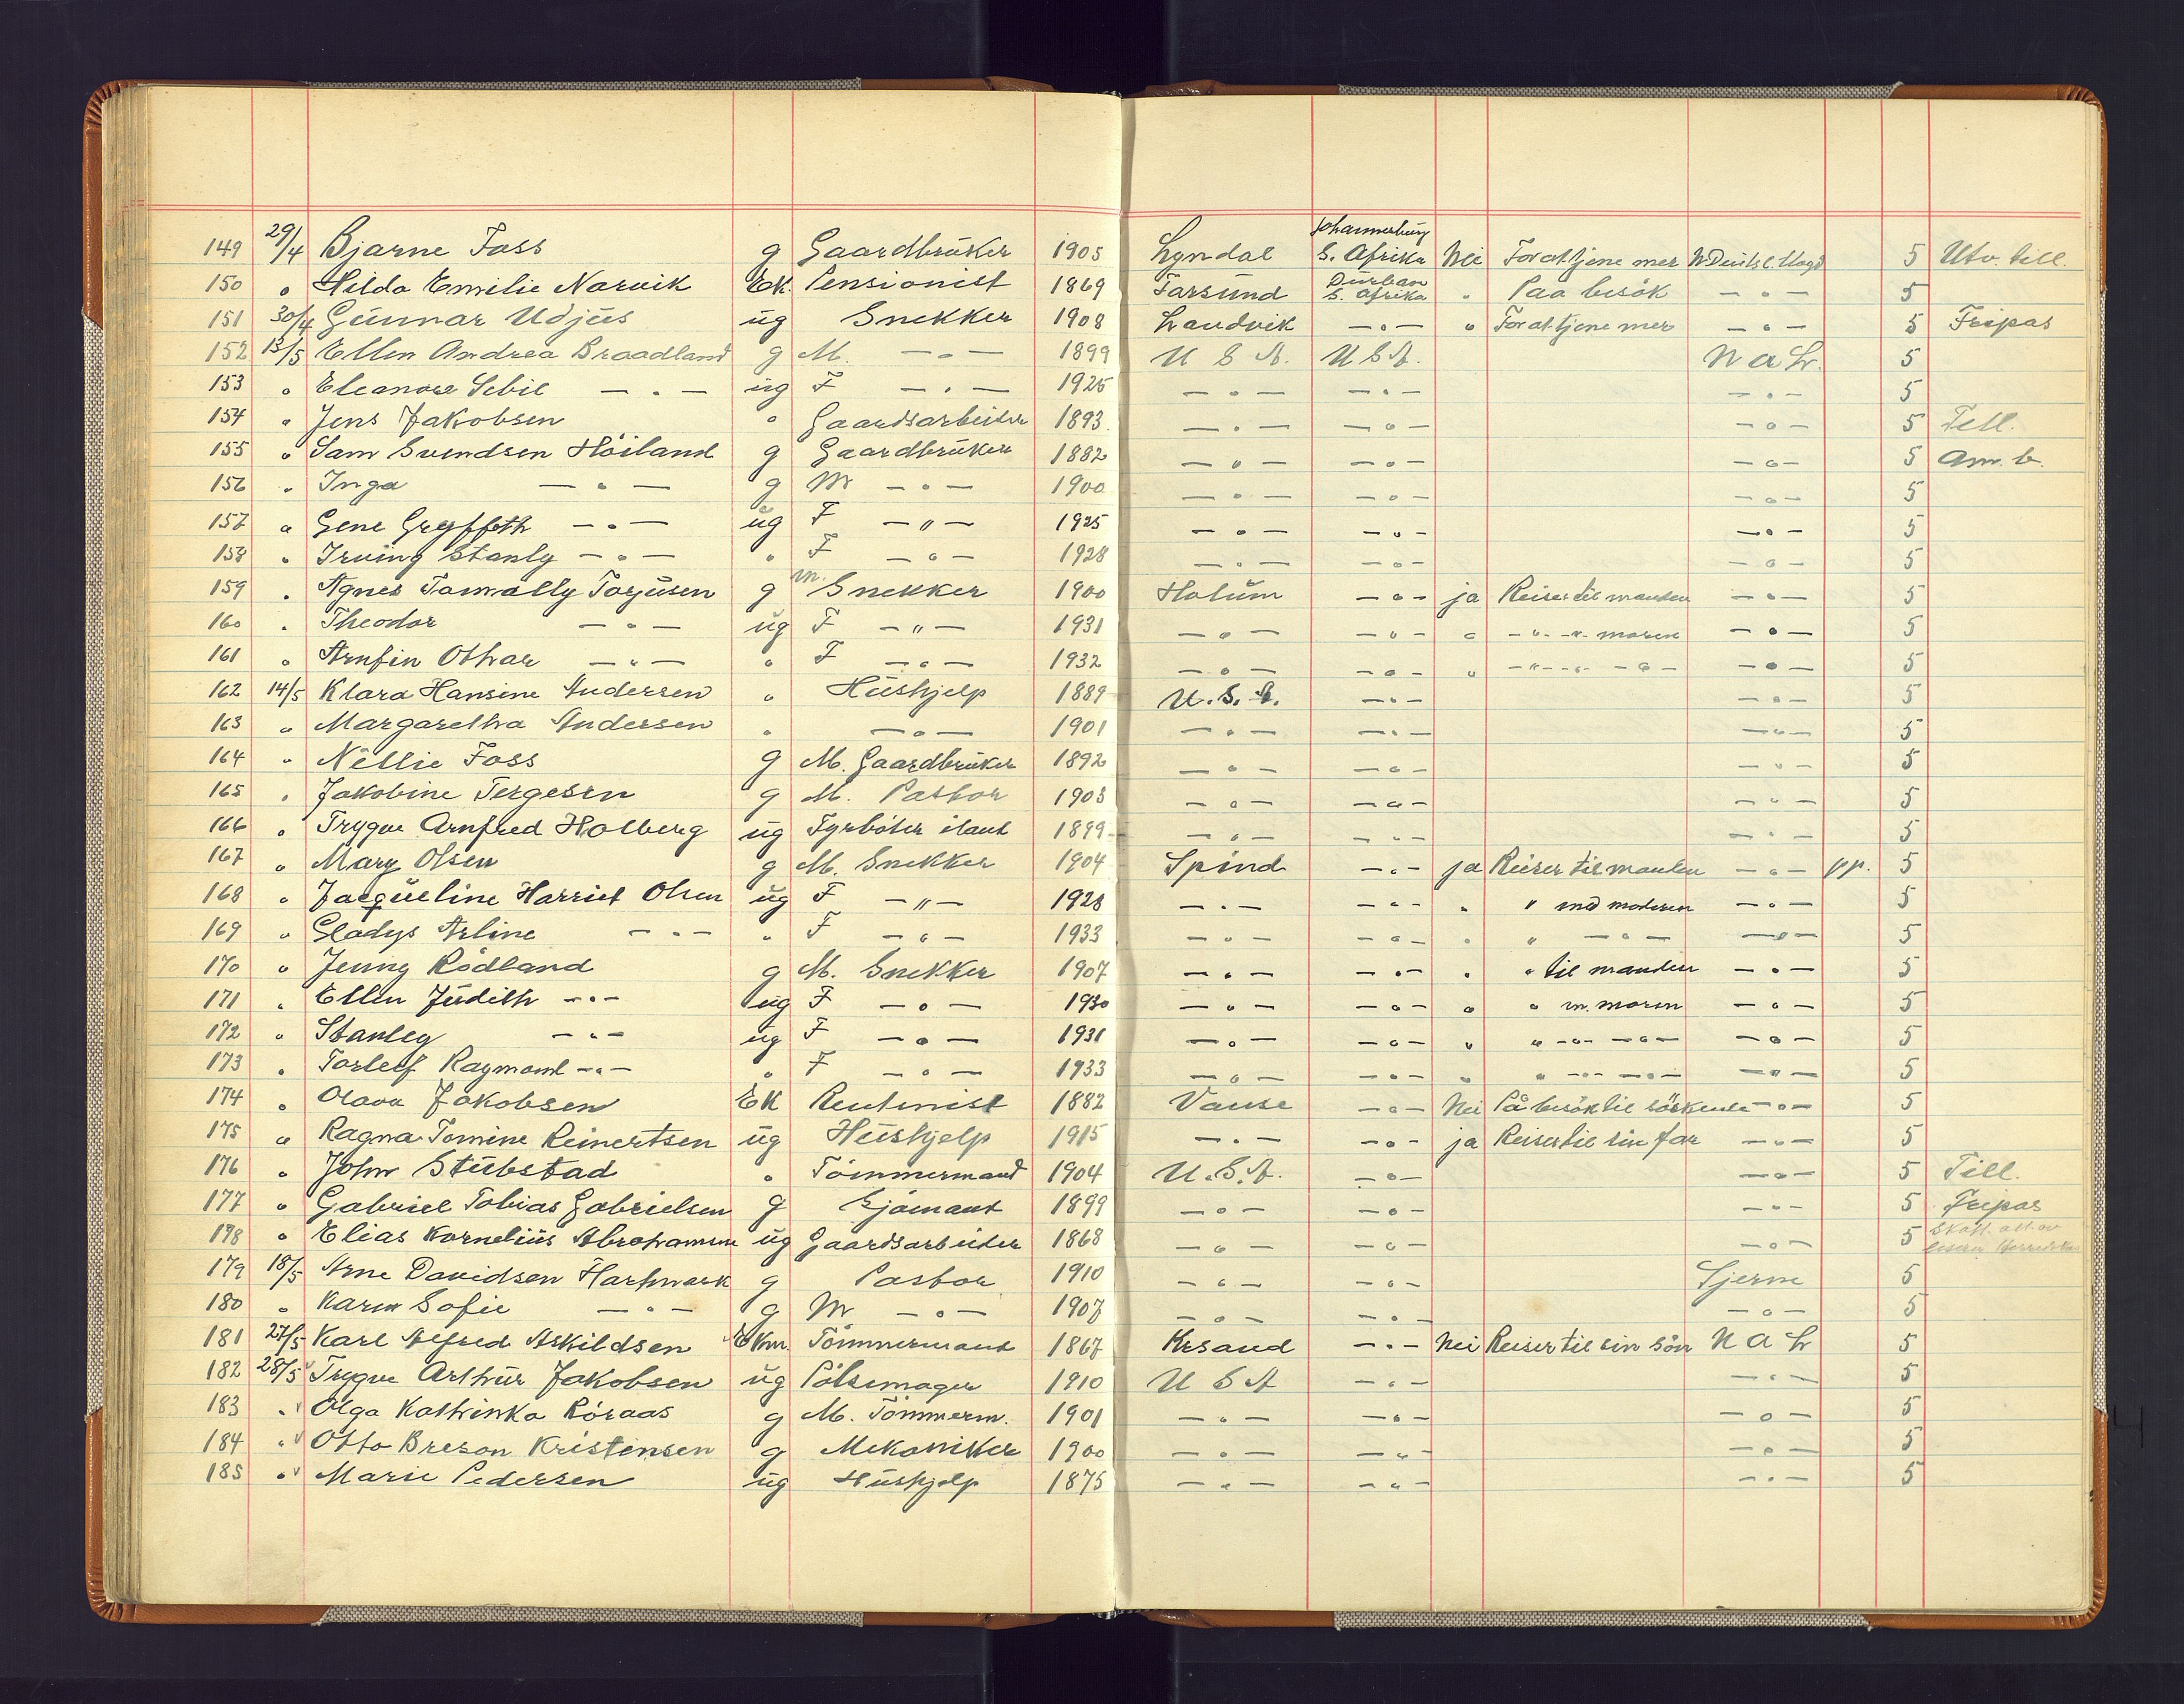 149 29/4 Bjarne Foss g Gaardbrüker 1905 Lyndal Johannesburg S. Afrika Nei For at tjene mer 5 Utv. till.
150 " Hilda Emilie Narvik Ek. Pensionist 1869 Farsund Durban S. Afrika " Paa besök — " — 5
151 30/4 Gunnar Udjus ug Snekker 1908 Landvik — " — " For at tjene mer — " — 5 Fripas
152 13/5 Ellen Andrea Braadland g M. — " — 1899 U S A. U S A. N a L. 5
153 " Eleanore Sebil — " — ug F — " — 1925 — " — — " — — " — 5
154 " Jens Jakobsen " Gaardsarbeider 1893 — " — — " — — " — 5 Till.
155 " Sam Svendsen Höiland g Gaardbrüker 1882 — " — — " — — " — 5 Am. b.
156 " Inga — " — g M — " — 1900 — " — — " — — " — 5
157 " Gene Gryffeth — " — ug F — " — 1925 — " — — " — — " — 5
158 " Irving Stanly — " — " F — " — 1928 — " — — " — — " — 5
159 " Agnes Tomally Torjusen g m. Snekker 1900 Holum — " — ja Reiser til manden — " — 5
160 " Theodor — " — ug F — " — 1931 — " — — " — " — " — " — moren — " — 5
161 " Arnfin Othar — " — " F — " — 1932 — " — — " — " — " — " — " — — " — 5
162 14/5 Klara Hansine Andersen " Hüshjelp 1889 U.S.A. — " — — " — 5
163 " Margaretha Andersen " — " — 1901 — " — — " — — " — 5
164 " Nellie Foss g M. Gaardbrüker 1892 — " — — " — — " — 5
165 " Jakobine Tergesen g M. Pastor 1903 — " — — " — — " — 5
166 " Trygve Arnfred Holberg ug Fyrböter ilant 1899 — " — — " — — " — 5
167 " Mary Olsen g M. Snekker 1904 Spind — " — ja Reiser til manden — " — pp. 5
168 " Jacqueline Harriet Olsen ug F — " — 1928 — " — — " — " " med moderen — " — 5
169 " Gladys Arline — " — " F — " — 1933 — " — — " — " " — " — — " — 5
170 " Jenny Rödland g M. Snekker 1907 — " — — " — " " til manden — " — 5
171 " Ellen Judith — " — ug F — " — 1930 — " — — " — " " m. moren — " — 5
172 " Stanley — " — ug F — " — 1931 — " — — " — " " — " — — " — — " — 5
173 " Torleif Raymond — " — " F — " — 1933 — " — — " — " " — " — — " — — " — 5
174 " Olava Jakobsen EK Rentenist 1882 Vanse — " — Nei På besök til söskende — " — 5
175 " Ragna Tomine Reinertsen ug Hüshjelp 1915 — " — — " — ja Reiser til sin far — " — 5
176 " John Stubstad " Tömmermand 1904 U.S.A. — " — — " — 5 Till.
177 " Gabriel Tobias Gabrielsen g Sjömant 1899 — " — — " — — " — 5 Fripas
178 " Elias Kornelius Abrahamsen ug Gaardsarbeider 1868 — " — — " — — " — 5 Skatt. att. av
179 18/5 Arne Davidsen Hartmark g Pastor 1910 — " — — " — Stjerne 5
180 " Karen Sofie — " — g M — " — 1907 — " — — " — — " — 5
181 27/5 Karl Alfred Askildsen Ekm. Tömmermand 1867 Krsand — " — Nei Reiser til sin sön N a L 5
182 28/5 Trygve Arthur Jakobsen ug Pölsemager 1910 U S A — " — — " — 5
183 " Olga Kathinka Röraas g M. Tömmerm. 1901 — " — — " — — " — 5
184 " Otto Breson Kristensen g Mekaniker 1900 — " — — " — — " — 5
185 " Marie Pedersen ug Hüshjelp 1875 — " — — " — — " — 5